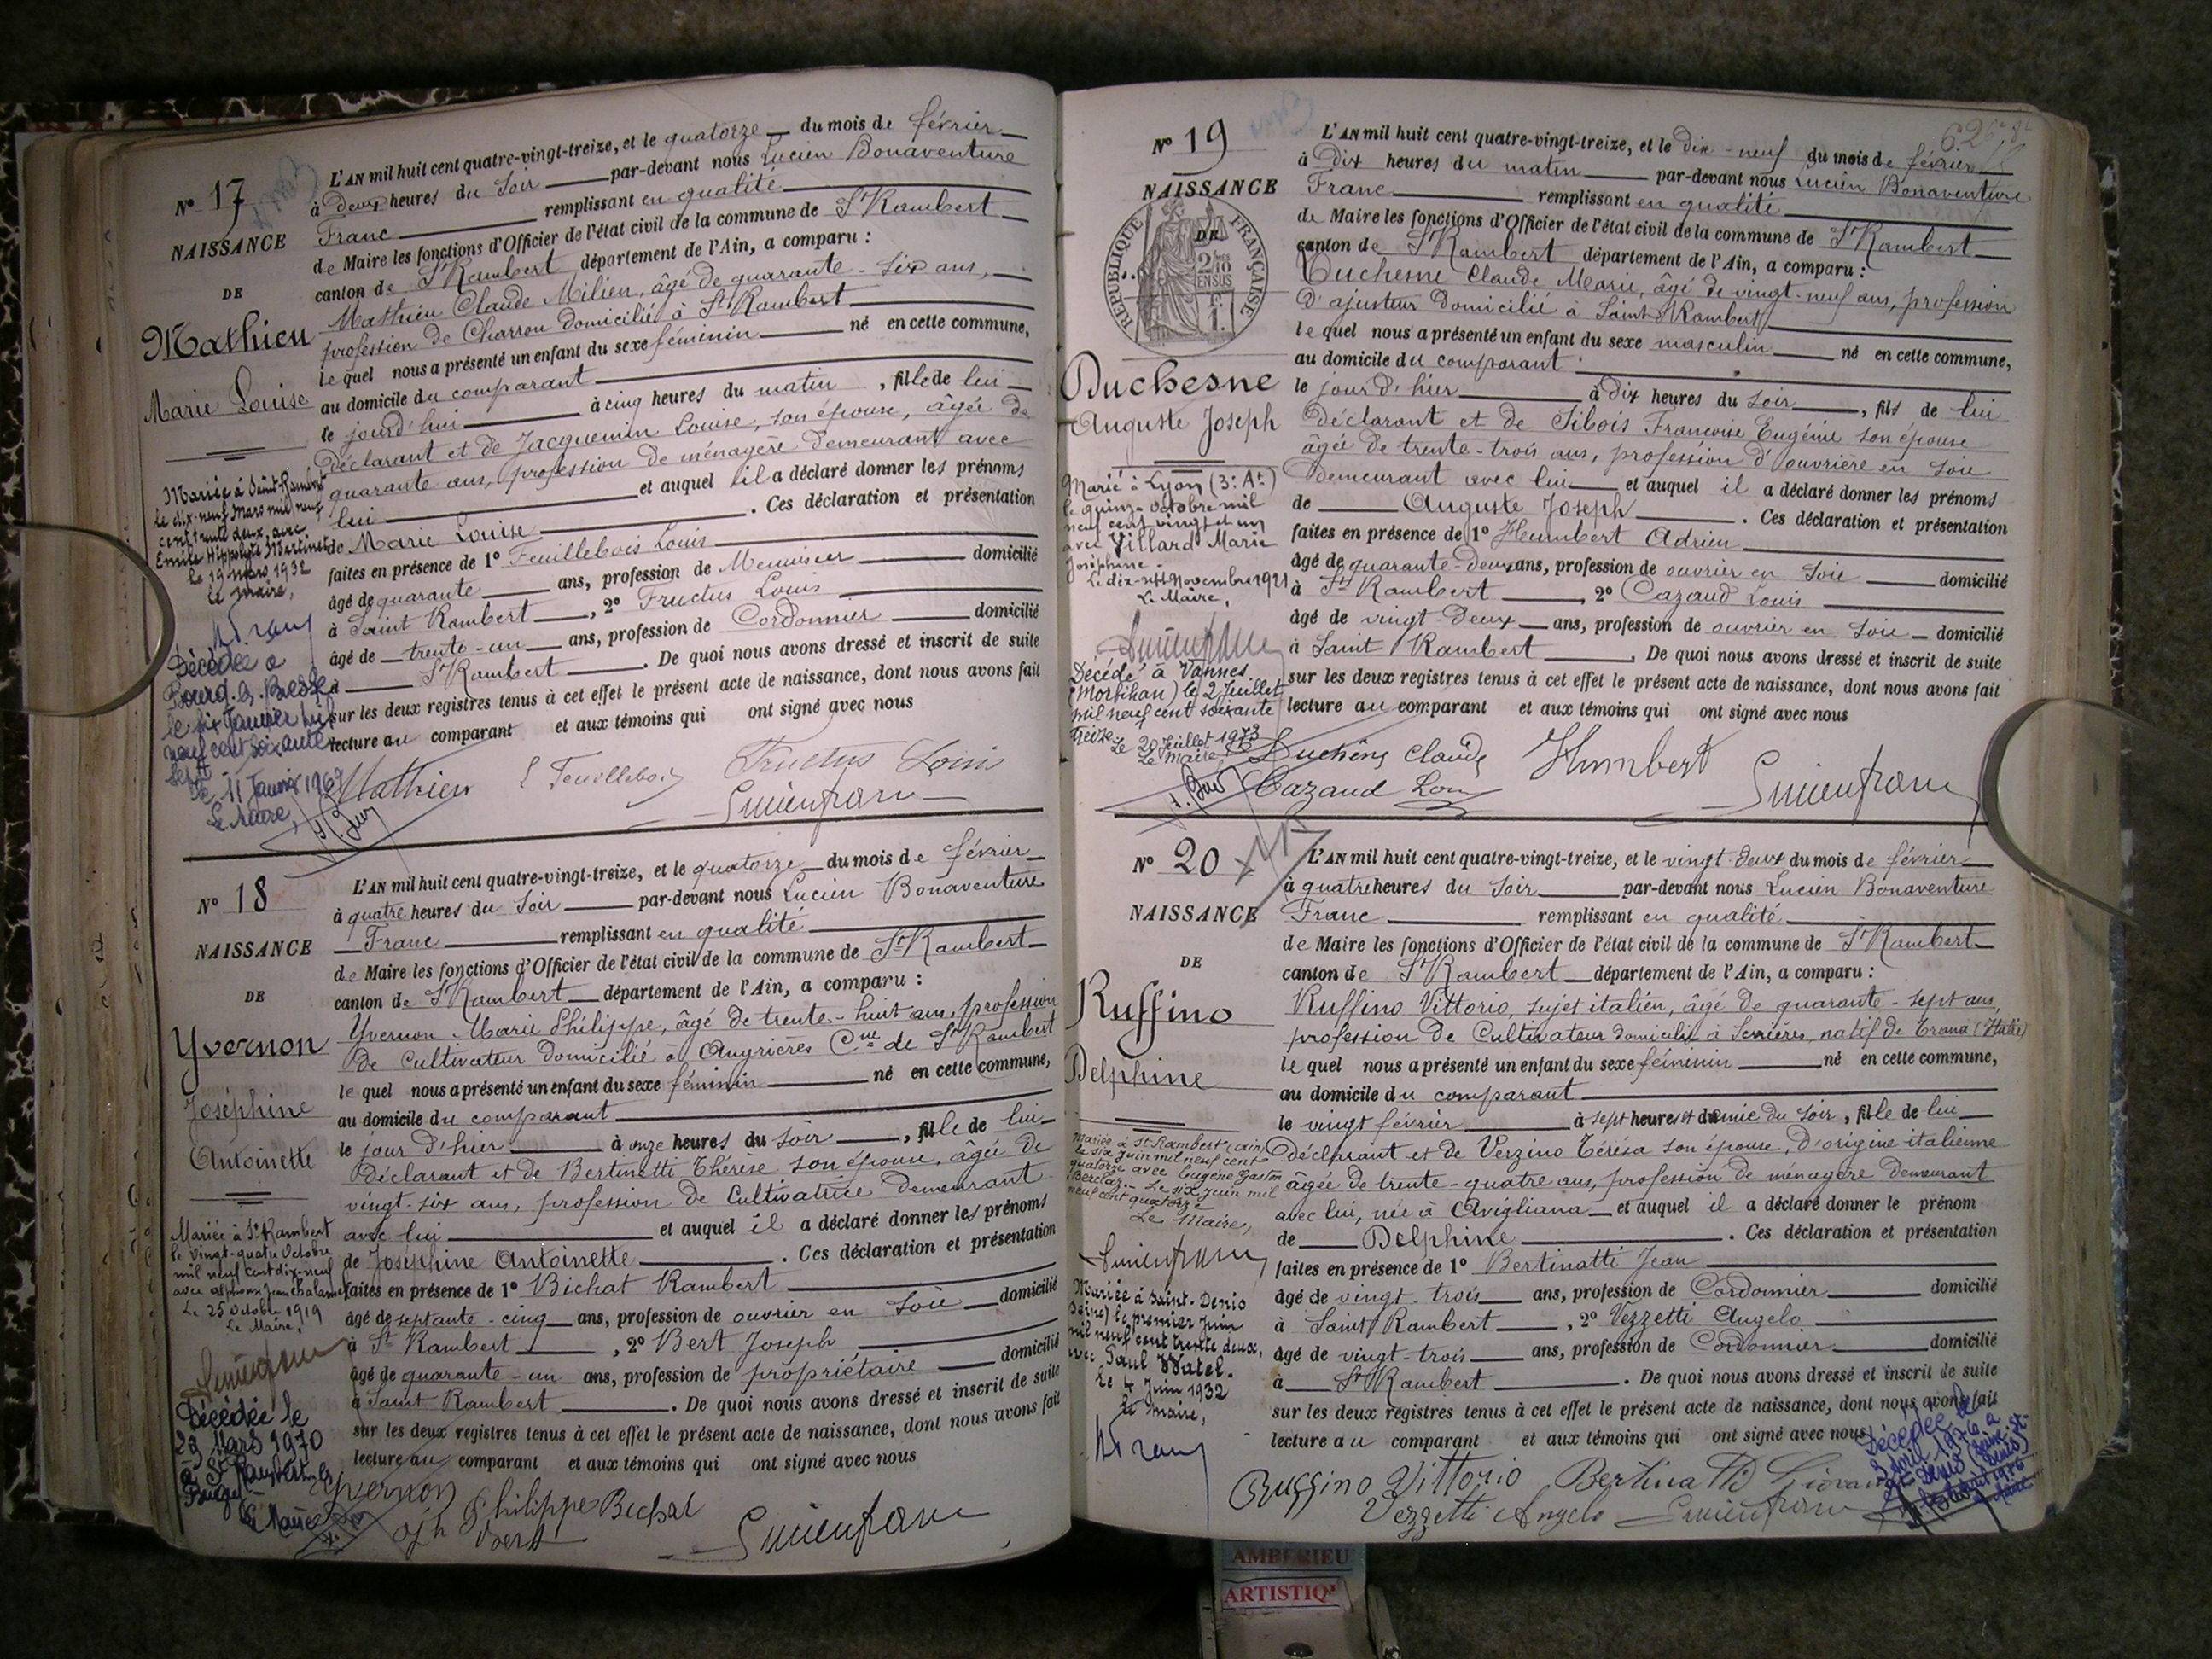 N° 17
NAISSANCE
DE
Mathieu
Marie Louise
Mariée à Saint-Rambert
le dix-neuf Mars mil neuf
cent trente deux, avec
Emile Hippolyte Martinet
le 19 Mars 1932
Le Maire,
Décédée à
Bourg-en-Bresse
le six Janvier mil
neuf cent soixante
sept
Le 11 Janvier 1967
Le Maire,
L'AN mil huit cent quatre-vingt-treize, et le quatorze du mois de février
à deux heures du soir par-devant nous Lucien Bonaventure
Franc remplissant en qualité
de Maire les fonctions d'Officier de l'état civil de la commune de St Rambert
canton de St Rambert département de l'Ain, a comparu :
Mathieu Claude Milien, âgé de quarante-six ans,
profession de Charron domicilié à St Rambert
lequel nous a présenté un enfant du sexe féminin né en cette commune,
au domicile du comparant
le jourd'hui à cinq heures du matin, fille de lui
déclarant et de Jacquemin Louise, son épouse, âgée de
quarante ans, profession de ménagère demeurant avec
lui et auquel il a déclaré donner les prénoms
de Marie Louise. Ces déclaration et présentation
faites en présence de 1° Feuillebois Louis
âgé de quarante ans, profession de Menuisier domicilié
à Saint Rambert, 2° Fructus Louis
âgé de trente-un ans, profession de Cordonnier domicilié
à St Rambert. De quoi nous avons dressé et inscrit de suite
sur les deux registres tenus à cet effet le présent acte de naissance, dont nous avons fait
lecture au comparant et aux témoins qui ont signé avec nous
Mathieu L Feuillebois Fructus Louis
Lucien franc
N° 18
NAISSANCE
DE
Yvernon
Joséphine
Antoinette
Mariée à St Rambert
le vingt-quatre Octobre
mil neuf cent dix-neuf
avec Alphonse Jean Chalamel
Le 25 Octobre 1919
Le Maire,
Lucien franc
Décédée le
29 Mars 1970
à St Rambert en
Bugey
Le Maire
L'AN mil huit cent quatre-vingt-treize, et le quatorze du mois de février
à quatre heures du soir par-devant nous Lucien Bonaventure
Franc remplissant en qualité
de Maire les fonctions d'Officier de l'état civil de la commune de St Rambert
canton de St Rambert département de l'Ain, a comparu :
Yvernon Marie Philippe, âgé de trente-huit ans, profession
de Cultivateur domicilié à Angrières Cne de St Rambert
lequel nous a présenté un enfant du sexe féminin né en cette commune,
au domicile du comparant
le jour d'hier à onze heures du soir, fille de lui
déclarant et de Bertinetti Thérèse son épouse, âgée de
vingt-six ans, profession de Cultivatrice demeurant
avec lui et auquel il a déclaré donner les prénoms
de Joséphine Antoinette. Ces déclaration et présentation
faites en présence de 1° Bichat Rambert
âgé de septante-cinq ans, profession de ouvrier en soie domicilié
à St Rambert, 2° Bert Joseph
âgé de quarante-un ans, profession de propriétaire domicilié
à Saint Rambert. De quoi nous avons dressé et inscrit de suite
sur les deux registres tenus à cet effet le présent acte de naissance, dont nous avons fait
lecture au comparant et aux témoins qui ont signé avec nous
Yvernon Philippe Bichat
Jph Bert Lucien franc
62
N° 19
NAISSANCE
DE
RÉPUBLIQUE FRANÇAISE
2/10 EN SUS
Duchesne
Auguste Joseph
Marié à Lyon (3e At)
le quinze Octobre mil
neuf cent vingt et un
avec Villard Marie
Joséphine.
Le dix-sept Novembre 1921
Le Maire,
Lucien franc
Décédé à Vannes
(Morbihan) le 2 Juillet
mil neuf cent soixante
treize
Le 20 Juillet 1973
Le Maire
L'AN mil huit cent quatre-vingt-treize, et le dix-neuf du mois de février
à dix heures du matin par-devant nous Lucien Bonaventure
Franc remplissant en qualité
de Maire les fonctions d'Officier de l'état civil de la commune de St Rambert
canton de St Rambert département de l'Ain, a comparu :
Duchesne Claude Marie, âgé de vingt-neuf ans, profession
d'ajusteur domicilié à Saint Rambert
lequel nous a présenté un enfant du sexe masculin né en cette commune,
au domicile du comparant
le jour d'hier à dix heures du soir, fils de lui
déclarant et de Sibois Françoise Eugénie son épouse
âgée de trente-trois ans, profession d'ouvrière en soie
demeurant avec lui et auquel il a déclaré donner les prénoms
de Auguste Joseph. Ces déclaration et présentation
faites en présence de 1° Humbert Adrien
âgé de quarante-deux ans, profession de ouvrier en soie domicilié
à St Rambert, 2° Cazaud Louis
âgé de vingt-deux ans, profession de ouvrier en soie domicilié
à Saint Rambert. De quoi nous avons dressé et inscrit de suite
sur les deux registres tenus à cet effet le présent acte de naissance, dont nous avons fait
lecture au comparant et aux témoins qui ont signé avec nous
Duchêne Claude Humbert
Cazaud Louis Lucien franc
N° 20
NAISSANCE
DE
Ruffino
Delphine
Mariée à St Rambert (Ain)
le six juin mil neuf cent
quatorze avec Eugène Gaston
Berclaz. Le six juin mil
neuf cent quatorze
Le Maire,
Lucien franc
Mariée à Saint-Denis
(Seine) le premier Juin
mil neuf cent trente deux,
avec Paul Watel.
Le 4 Juin 1932
Le Maire,
L'AN mil huit cent quatre-vingt-treize, et le vingt-deux du mois de février
à quatre heures du soir par-devant nous Lucien Bonaventure
Franc remplissant en qualité
de Maire les fonctions d'Officier de l'état civil de la commune de St Rambert
canton de St Rambert département de l'Ain, a comparu :
Ruffino Vittorio, sujet italien, âgé de quarante-sept ans,
profession de Cultivateur domicilié à Serrières, natif de Trana (Italie)
lequel nous a présenté un enfant du sexe féminin né en cette commune,
au domicile du comparant
le vingt février à sept heures et demie du soir, fille de lui
déclarant et de Verzino Térésa son épouse, d'origine italienne
âgée de trente-quatre ans, profession de ménagère demeurant
avec lui, née à Avigliana et auquel il a déclaré donner le prénom
de Delphine. Ces déclaration et présentation
faites en présence de 1° Bertinatti Jean
âgé de vingt-trois ans, profession de Cordonnier domicilié
à Saint Rambert, 2° Vezzetti Angelo
âgé de vingt-trois ans, profession de Cordonnier domicilié
à St Rambert. De quoi nous avons dressé et inscrit de suite
sur les deux registres tenus à cet effet le présent acte de naissance, dont nous avons fait
lecture au comparant et aux témoins qui ont signé avec nous
Ruffino Vittorio Bertinatti
Vezzetti Angelo Lucien franc
Décédée le
3 avril 1976 à
St Denis (Seine-St-
Denis)
AMBERIEU
ARTISTIQ